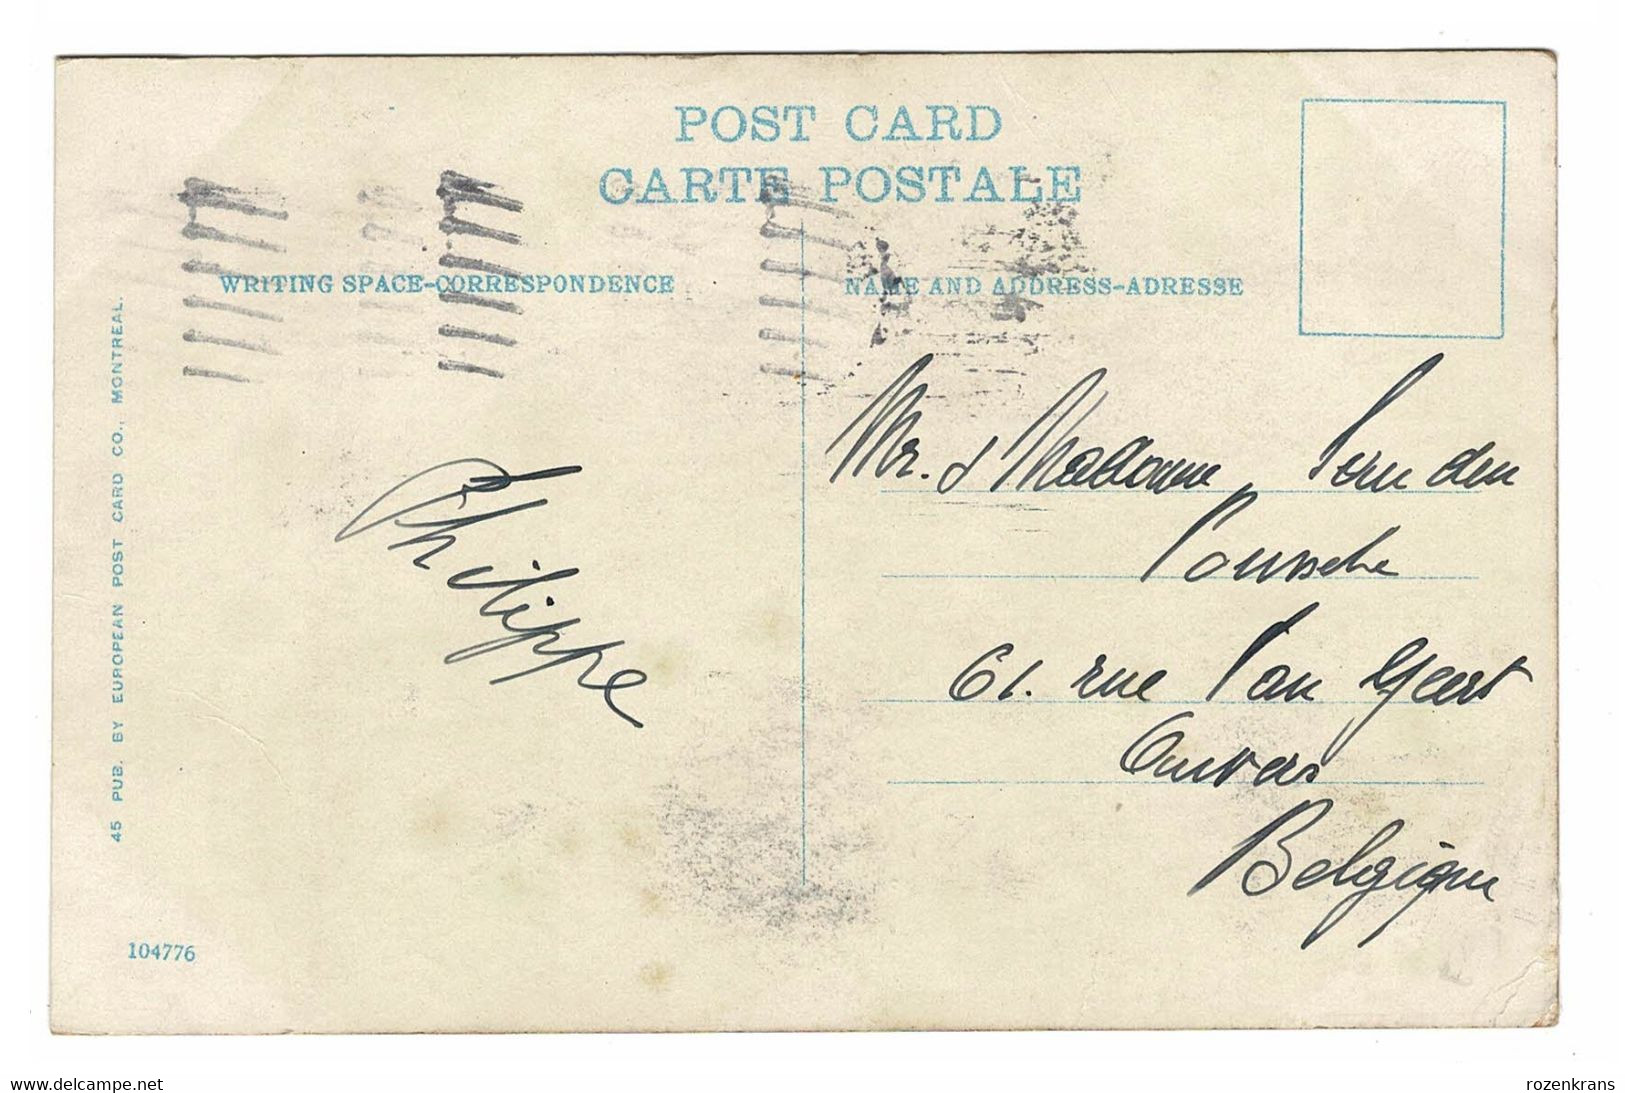 POST CARD
CARTE POSTALE
WRITING SPACE-CORRESPONDENCE
NAME AND ADDRESS-ADRESSE
45 PUB. BY EUROPEAN POST CARD CO., MONTREAL.
Philippe
Mr. & Madame
61. rue Van Geert
Anvers
Belgique
104776
www.delcampe.net
rozenkrans